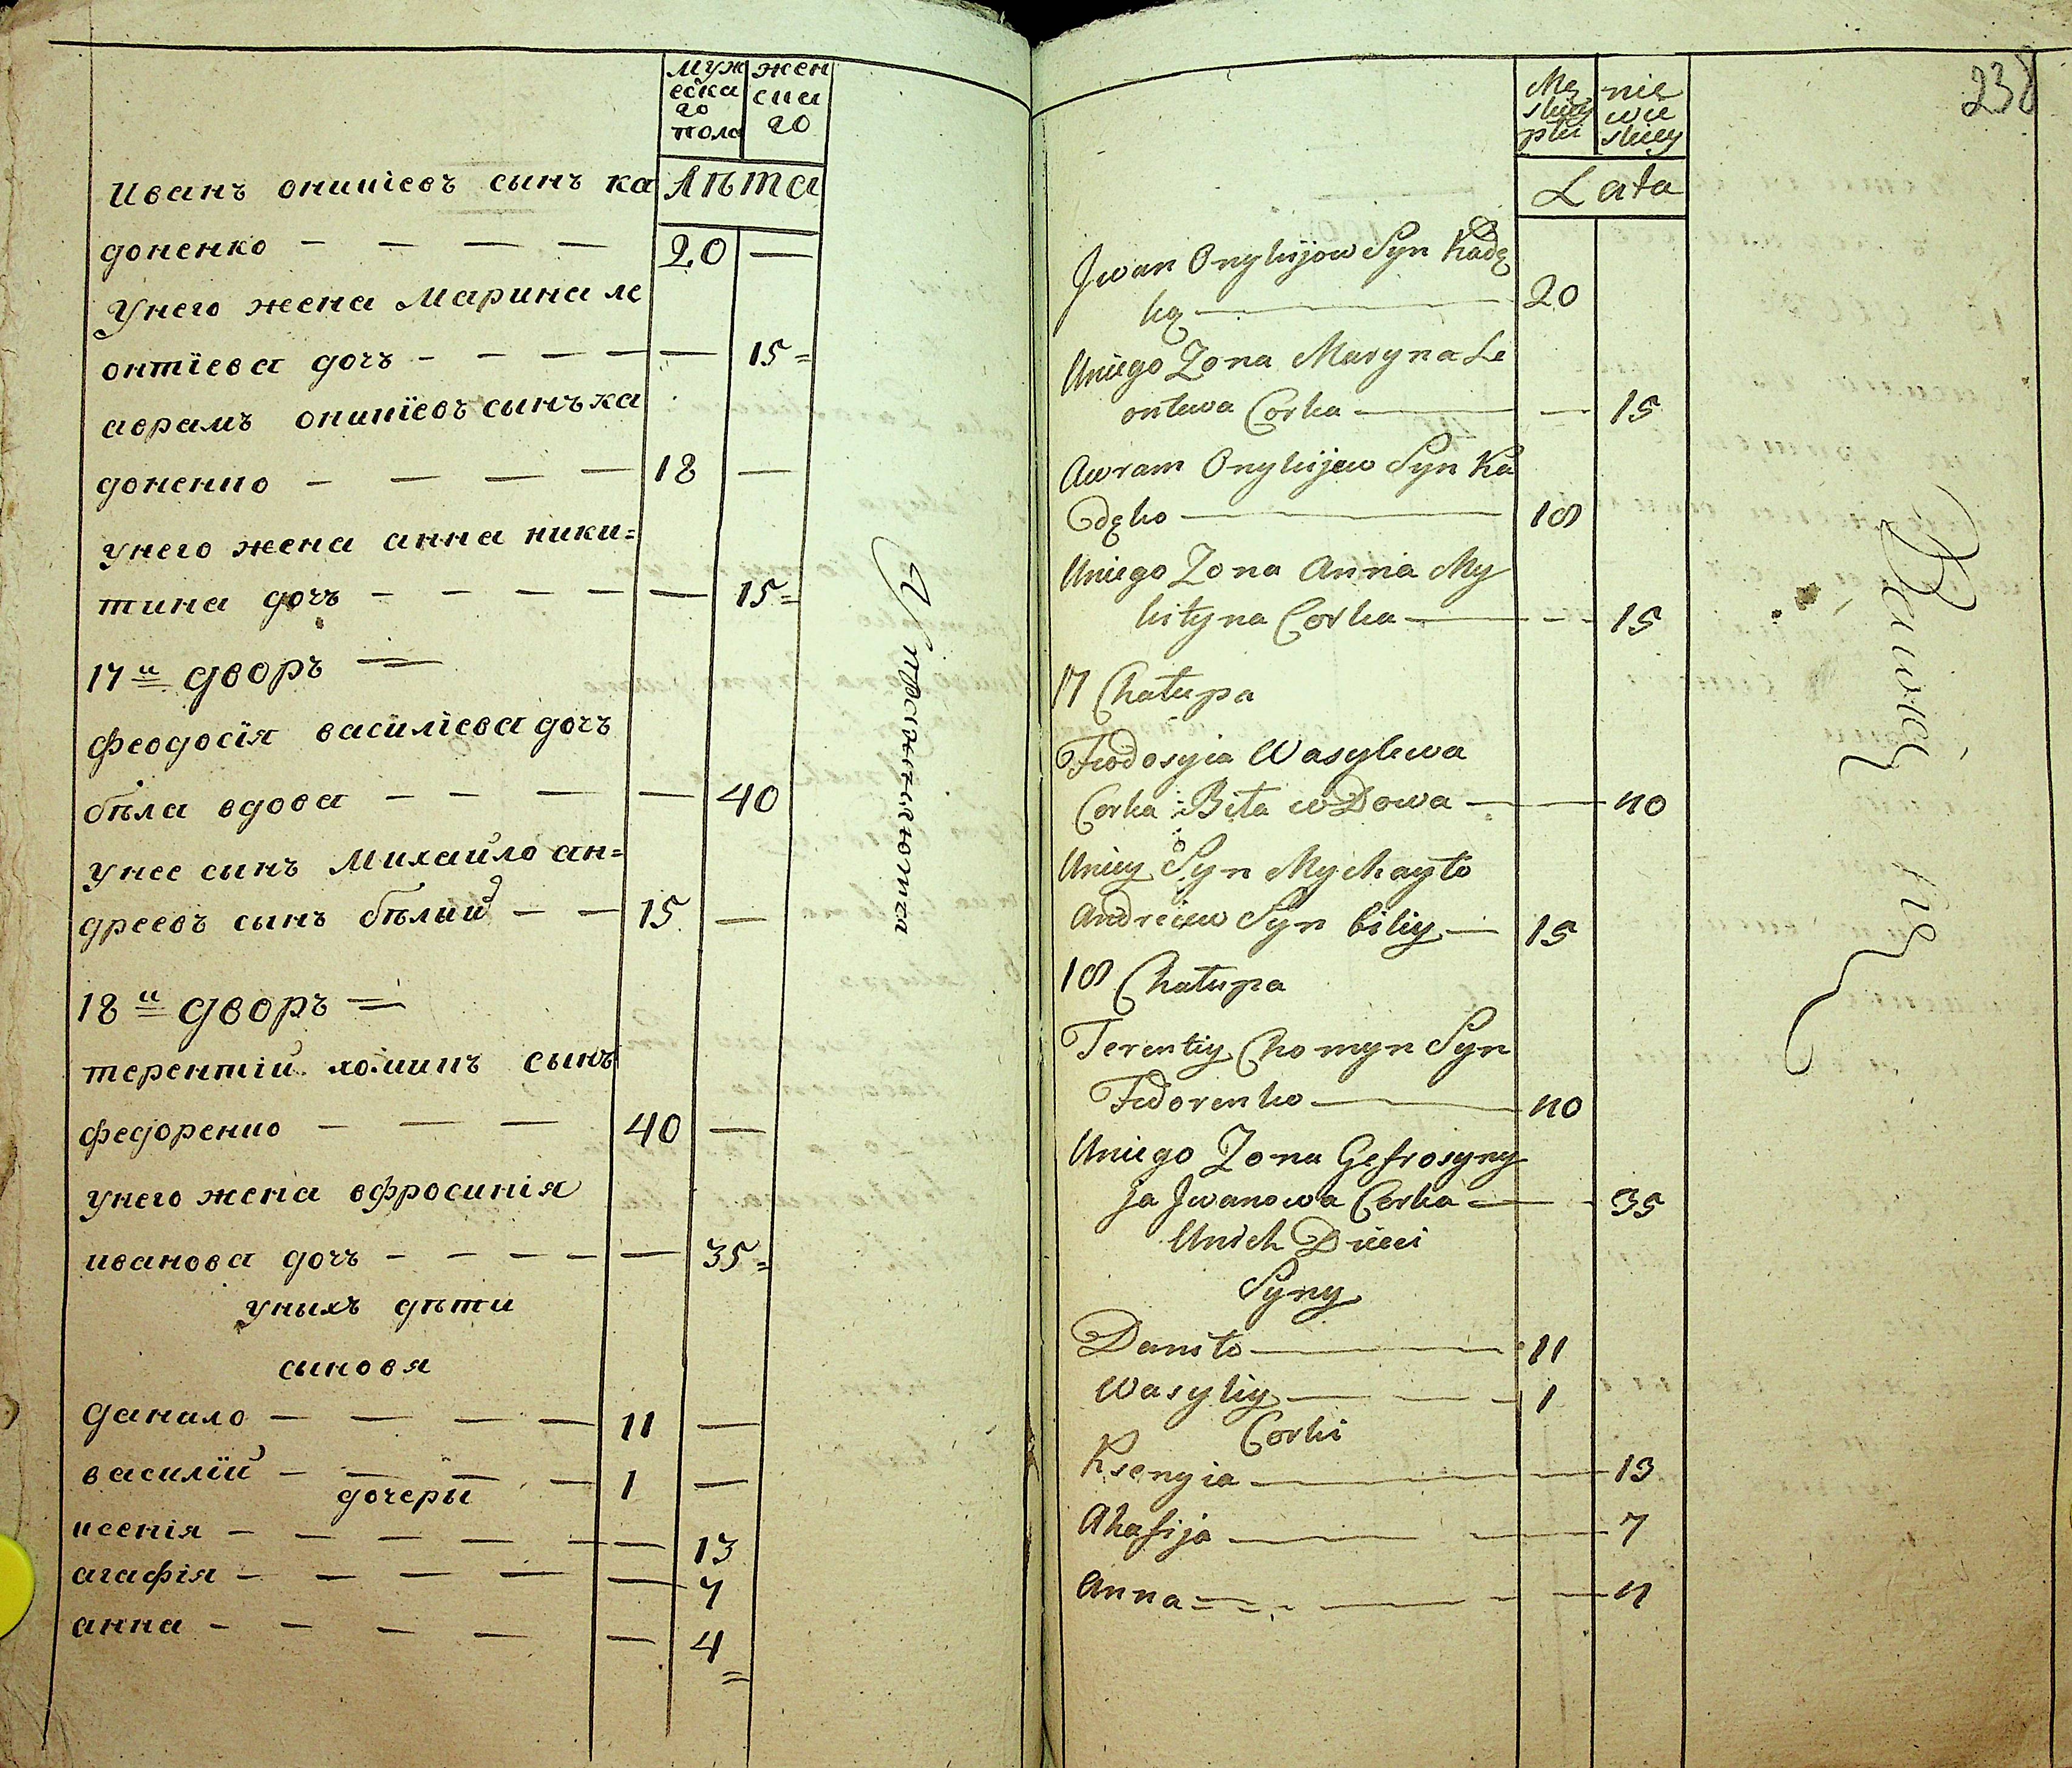 муж жен
еска ска
го го
пола
Лѣта
Иванъ оникіевъ сынъ ка
доненко — — — — 20 —
Унего жена Марина ле
онтіева дочъ — — — — — 15=
аврамъ оникіевъ сынъ ка
доненко — — — — 18 —
унего жена анна ники=
тина дочъ — — — — — 15=
17й дворъ =
феодосія василіева дочъ
бѣла вдова — — — — 40
унее сынъ Михайло ан=
дреевъ сынъ бѣлий — — 15 —
18й дворъ =
терентій хоминъ сынъ
федоренко — — — 40 —
унего жена ефросинія
иванова дочъ — — — — — 35=
уныхъ дѣти
сыновя
данило — — — — 11 —
василій — — — — 1 —
дочеры
ксенія — — — — — — 13
агафія — — — — — 7
анна — — — — — — 4
=
Упражняются
238
Mę nie
skiey wie
płci skiey
Lata
Jwan Onykijow Syn Kadę
kę — 20
Uniego Zona Maryna Le
ontewa Corka — — 15
Awram Onykijew Syn Ka
dęko — 18
Uniego Zona Anna My
kityna Corka — — — 15
17 Chałupa
Fiodosyia Wasylewa
Corka Biła wDowa — — 40
Uniey Syn Mychayło
Andreiew Syn biliy — 15
18 Chałupa
Terentiy Chomyn Syn
Fedorenko — 40
Uniego Zona Gefrosyny
ja Jwanowa Corka — — 35
Unich Dzieci
Syny
Daniło — 11
Wasyliy — — — 1
Corki
Ksenyia — — 13
Ahafija — — 7
Anna — — — — — 4